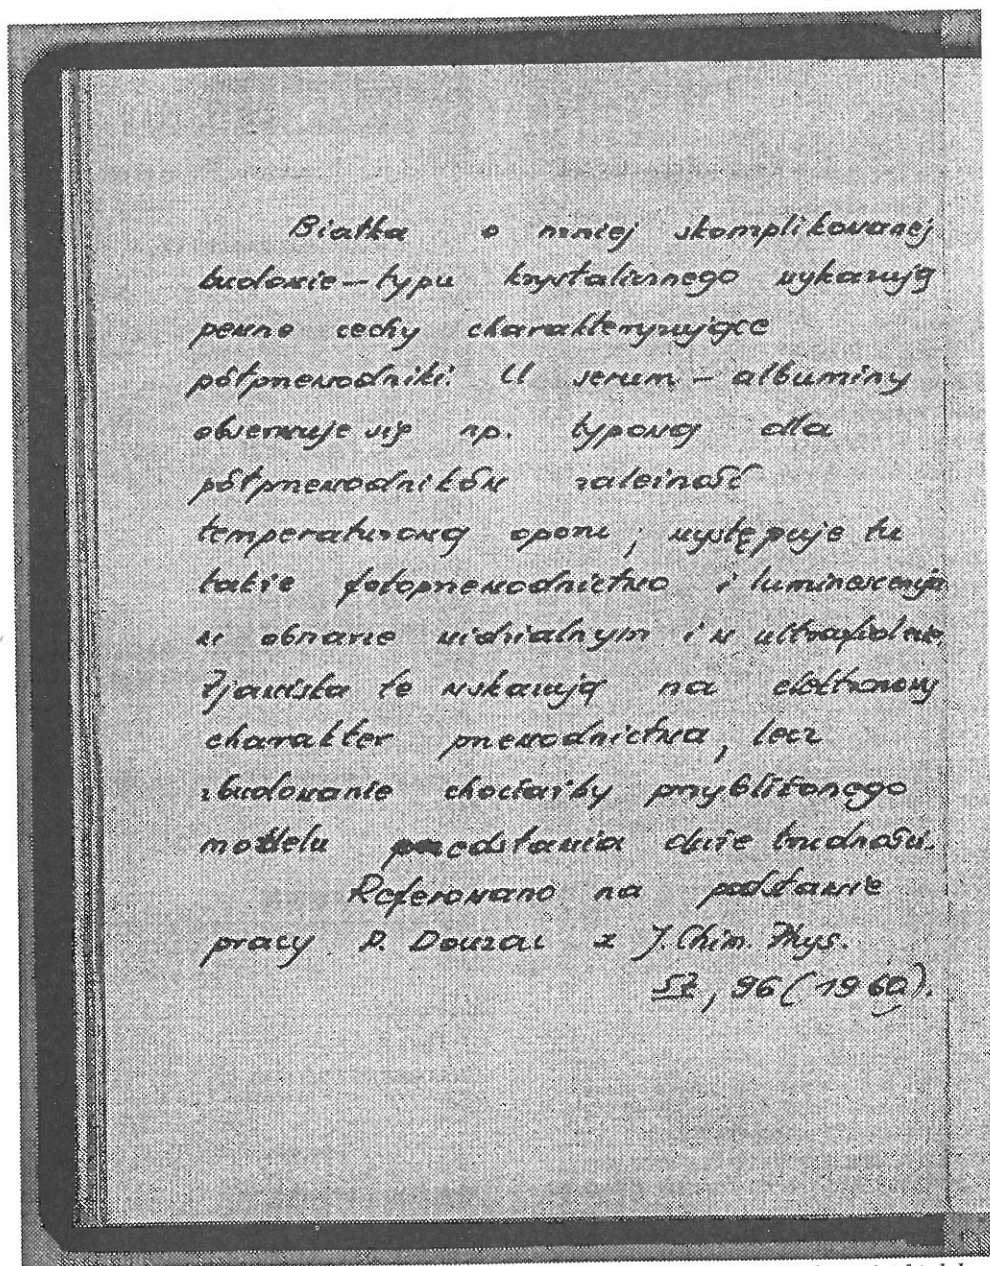 Białka o mniej skomplikowanej
budowie – typu krystalicznego wykazują
pewne cechy charakteryzujące
półprzewodniki. U serum – albuminy
obserwuje się np. typową dla
półprzewodników zależność
temperaturową oporu; występuje tu
także fotoprzewodnictwo i luminescencja
w obszarze widzialnym i w ultrafiolecie.
Zjawiska te wskazują na elektronowy
charakter przewodnictwa, lecz
zbudowanie chociażby przybliżonego
modelu przedstawia duże trudności.
Referowano na podstawie
pracy P. Douzou z J. Chim. Phys.
57, 96 (1960).